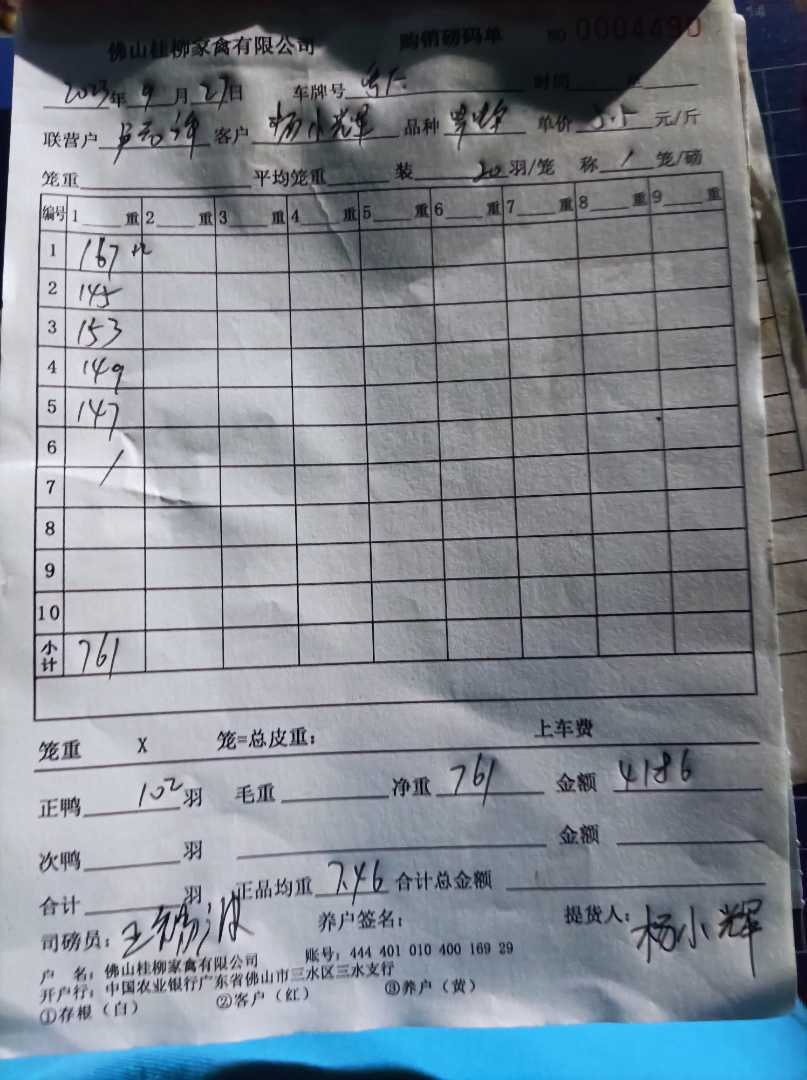 佛山桂柳家禽有限公司 购销磅码单 NO 0004490
2023年 9 月 27日 车牌号 时间 至
联营户 客户 杨小辉 品种 单价 5.5 元/斤
笼重 平均笼重 装 20 羽/笼 称 1 笼/磅
编号 1 重 2 重 3 重 4 重 5 重 6 重 7 重 8 重 9 重
1 167
2 145
3 153
4 149
5 147
6
7
8
9
10
小计 761
笼重 X 笼=总皮重: 上车费
正鸭 102 羽 毛重 净重 761 金额 4186
次鸭 羽 金额
合计 羽 正品均重 7.46 合计总金额
司磅员: 王锡波 养户签名: 提货人: 杨小辉
户 名: 佛山桂柳家禽有限公司 账号: 444 401 010 400 169 29
开户行: 中国农业银行广东省佛山市三水区三水支行
①存根(白) ②客户(红) ③养户(黄)